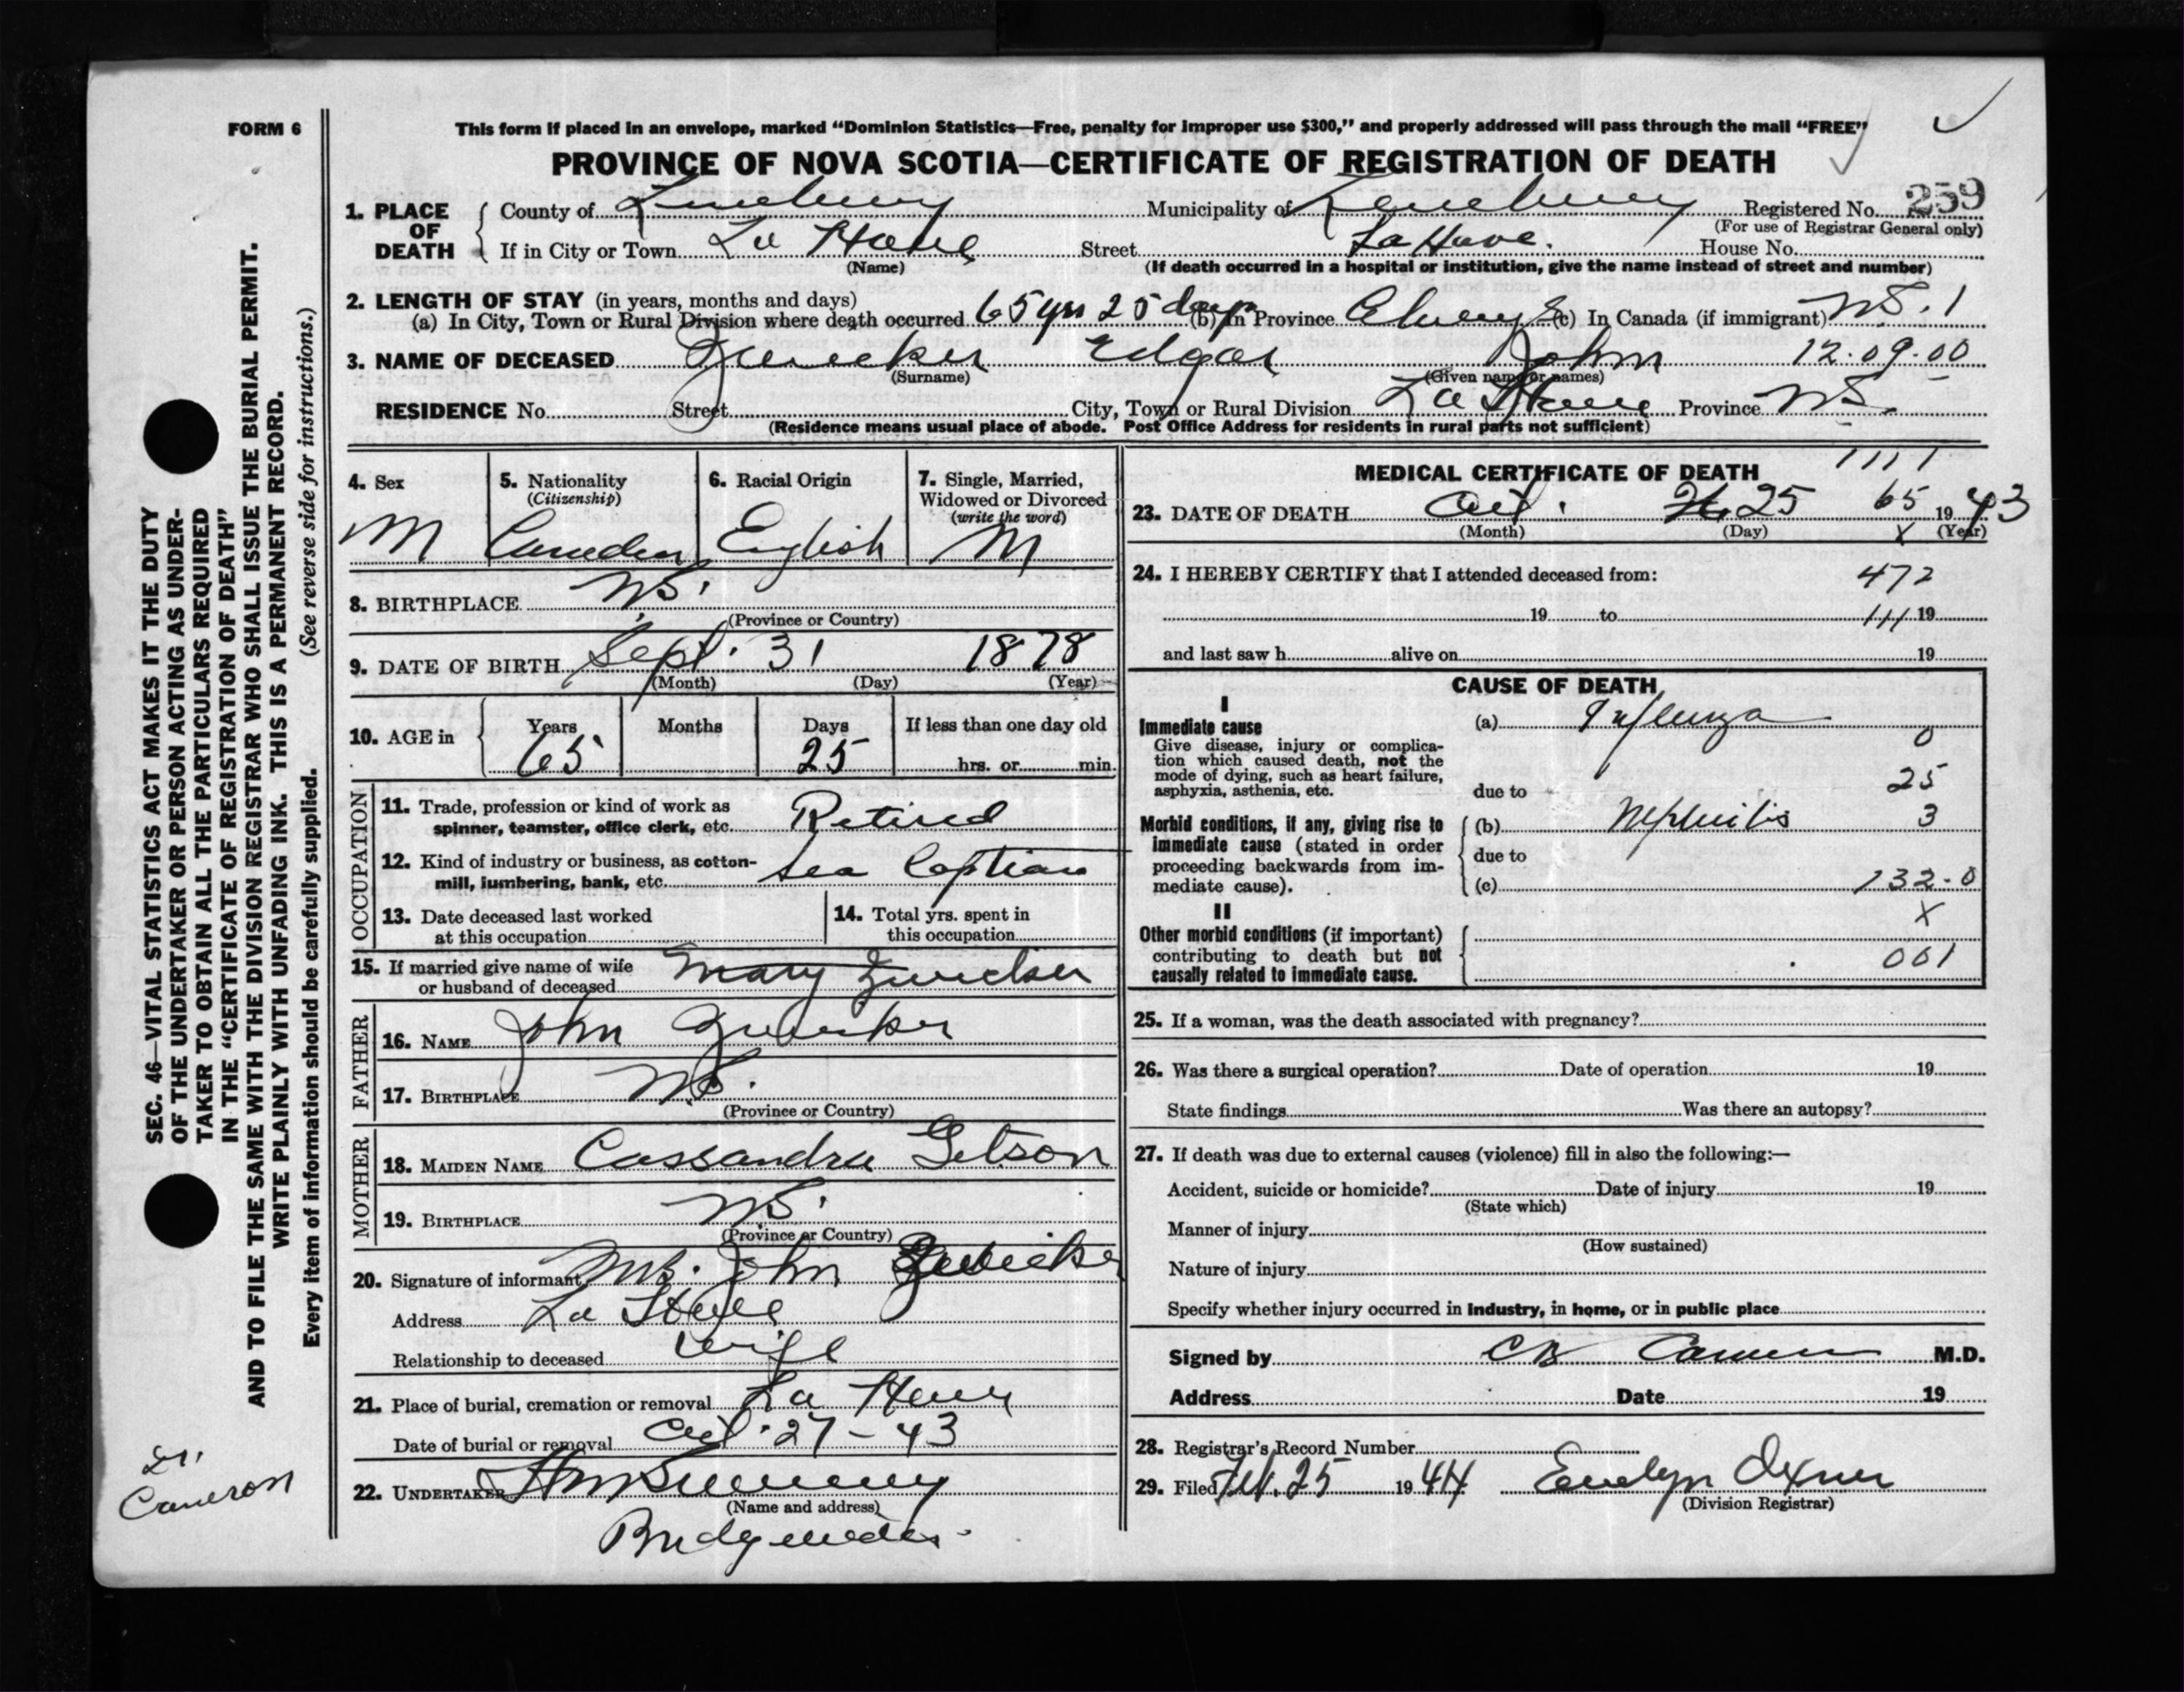 FORM 6
This form if placed in an envelope, marked “Dominion Statistics—Free, penalty for improper use $300,” and properly addressed will pass through the mail “FREE”
PROVINCE OF NOVA SCOTIA—CERTIFICATE OF REGISTRATION OF DEATH
1. PLACE OF DEATH
County of Lunenburg Municipality of Lunenburg Registered No. 259
(For use of Registrar General only)
If in City or Town La Have Street LaHave. House No.
(Name) (If death occurred in a hospital or institution, give the name instead of street and number)
2. LENGTH OF STAY (in years, months and days)
(a) In City, Town or Rural Division where death occurred 65 yrs 25 days (b) In Province Always (c) In Canada (if immigrant) N.S. 1
3. NAME OF DECEASED Zwicker Edgar John 12.09.00
(Surname) (Given name or names)
RESIDENCE No. Street City, Town or Rural Division La Have Province N.S.
(Residence means usual place of abode. Post Office Address for residents in rural parts not sufficient)
4. Sex 5. Nationality (Citizenship) 6. Racial Origin 7. Single, Married, Widowed or Divorced (write the word)
M Canadian English M
8. BIRTHPLACE N.S.
(Province or Country)
9. DATE OF BIRTH Sept. 31 1878
(Month) (Day) (Year)
10. AGE in Years Months Days If less than one day old
65 25 hrs. or min.
OCCUPATION
11. Trade, profession or kind of work as
spinner, teamster, office clerk, etc. Retired
12. Kind of industry or business, as cotton-
mill, lumbering, bank, etc. Sea Captian
13. Date deceased last worked
at this occupation
14. Total yrs. spent in
this occupation
15. If married give name of wife
or husband of deceased Mary Zwicker
FATHER
16. NAME John Zwicker
17. BIRTHPLACE N.S.
(Province or Country)
MOTHER
18. MAIDEN NAME Cassandra Getson
19. BIRTHPLACE N.S.
(Province or Country)
20. Signature of informant Mrs. John Zwicker
Address La Have
Relationship to deceased Wife
21. Place of burial, cremation or removal La Have
Date of burial or removal Oct. 27-43
22. UNDERTAKER
(Name and address)
Bridgewater
1111
MEDICAL CERTIFICATE OF DEATH
23. DATE OF DEATH Oct. 25 65 1943
(Month) (Day) X (Year)
24. I HEREBY CERTIFY that I attended deceased from: 472
19 to 111 19
and last saw h alive on 19
CAUSE OF DEATH
I
Immediate cause (a) Influenza
Give disease, injury or complica-
tion which caused death, not the
mode of dying, such as heart failure,
asphyxia, asthenia, etc.
0
25
due to
Morbid conditions, if any, giving rise to
immediate cause (stated in order
proceeding backwards from im-
mediate cause).
(b) Nephritis 3
due to
(c) 132-0
II
X
Other morbid conditions (if important)
contributing to death but not
causally related to immediate cause.
001
25. If a woman, was the death associated with pregnancy?
26. Was there a surgical operation? Date of operation 19
State findings Was there an autopsy?
27. If death was due to external causes (violence) fill in also the following:—
Accident, suicide or homicide? Date of injury 19
(State which)
Manner of injury
(How sustained)
Nature of injury
Specify whether injury occurred in industry, in home, or in public place
Signed by CB Cameron M.D.
Address Date 19
28. Registrar's Record Number
29. Filed Feb. 25 1944 Evelyn Oxner
(Division Registrar)
SEC. 46—VITAL STATISTICS ACT MAKES IT THE DUTY
OF THE UNDERTAKER OR PERSON ACTING AS UNDER-
TAKER TO OBTAIN ALL THE PARTICULARS REQUIRED
IN THE “CERTIFICATE OF REGISTRATION OF DEATH”
AND TO FILE THE SAME WITH THE DIVISION REGISTRAR WHO SHALL ISSUE THE BURIAL PERMIT.
WRITE PLAINLY WITH UNFADING INK. THIS IS A PERMANENT RECORD.
Every item of information should be carefully supplied. (See reverse side for instructions.)
Dr.
Cameron